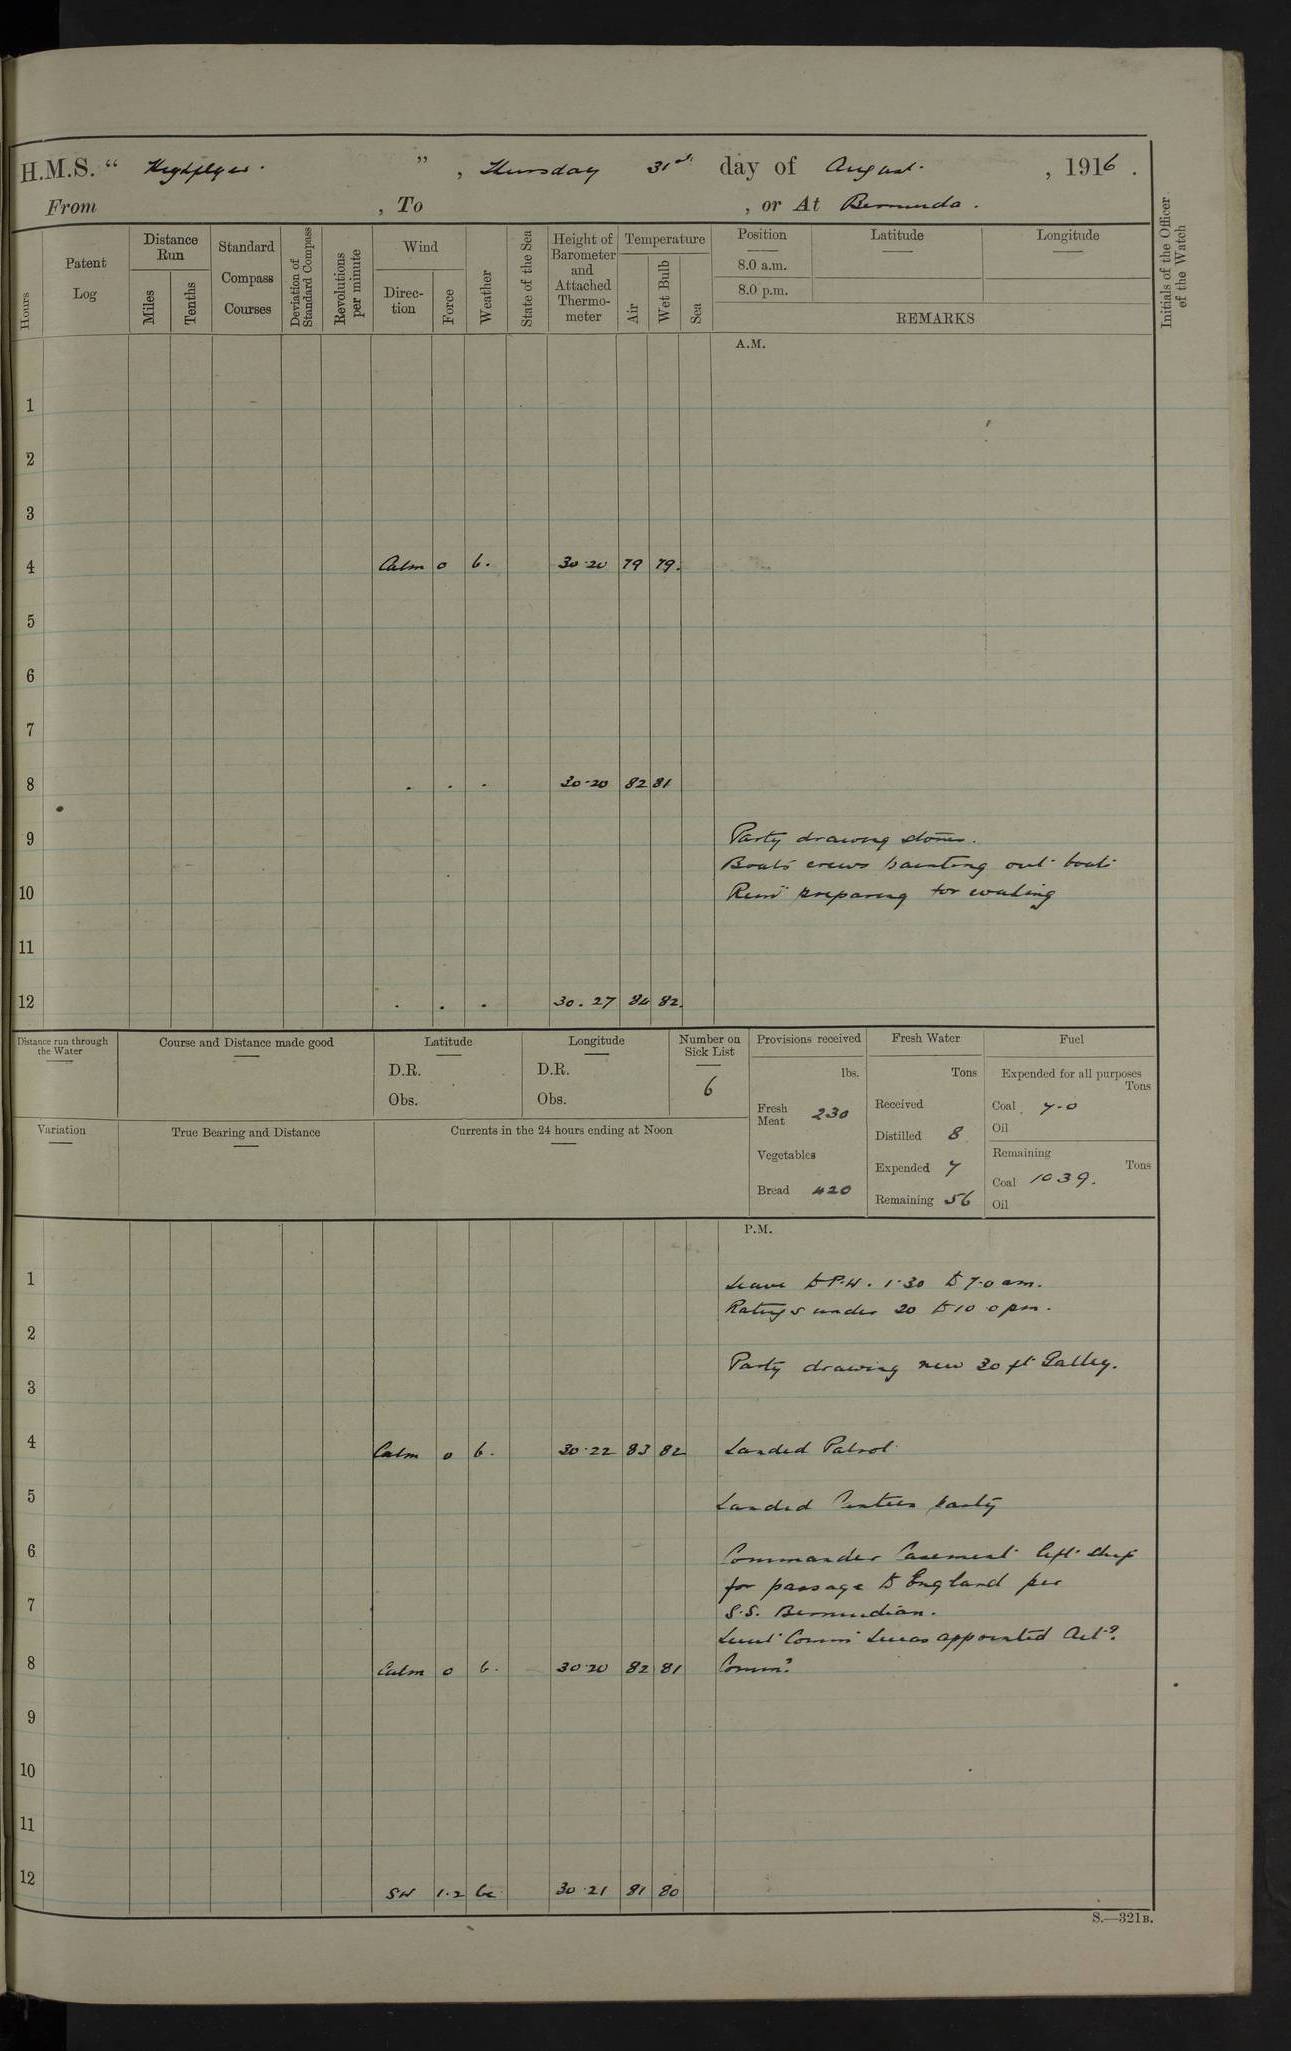 H.M.S. " Highflyer. ", Thursday 31st day of August. , 1916.
From , To , or At Bermuda.
Hours
Patent Log
Distance Run
Miles
Tenths
Standard Compass Courses
Deviation of Standard Compass
Revolutions per minute
Wind
Direction
Force
Weather
State of the Sea
Height of Barometer and Attached Thermometer
Temperature
Air
Wet Bulb
Sea
Position
8.0 a.m.
8.0 p.m.
Latitude
Longitude
REMARKS
Initials of the Officer of the Watch
A.M.
1
2
3
4 Calm 0 b. 30.20 79 79.
5
6
7
8 . . . 30.20 82 81
9 Party drawing stores.
Boats crews hauling out boats
10 preparing for coaling
11
12 . . . 30.27 84 82.
Distance run through the Water
Course and Distance made good
Latitude
D.R.
Obs.
Longitude
D.R.
Obs.
Number on Sick List
6
Provisions received
lbs.
Fresh Meat 230
Vegetables
Bread 420
Fresh Water
Tons
Received
Distilled 8
Expended 7
Remaining 56
Fuel
Expended for all purposes
Tons
Coal 7.0
Oil
Remaining
Tons
Coal 1039.
Oil
Variation
True Bearing and Distance
Currents in the 24 hours ending at Noon
P.M.
1 Leave to P.W. 1.30 to 7.0 am.
Ratings under 20 to 10.0 pm.
2
Party drawing new 30 ft Galley.
3
4 Calm 0 b. 30.22 83 82 Landed Patrol
5 Landed party
6 Commander Casement left ship
for passage to England per
7 S.S. Bermudian.
Lieut Comm Lucas appointed Act?
8 Calm 0 b. 30.20 82 81 Comm?
9
10
11
12 SW 1.2 bc 30.21 81 80
S.—321B.